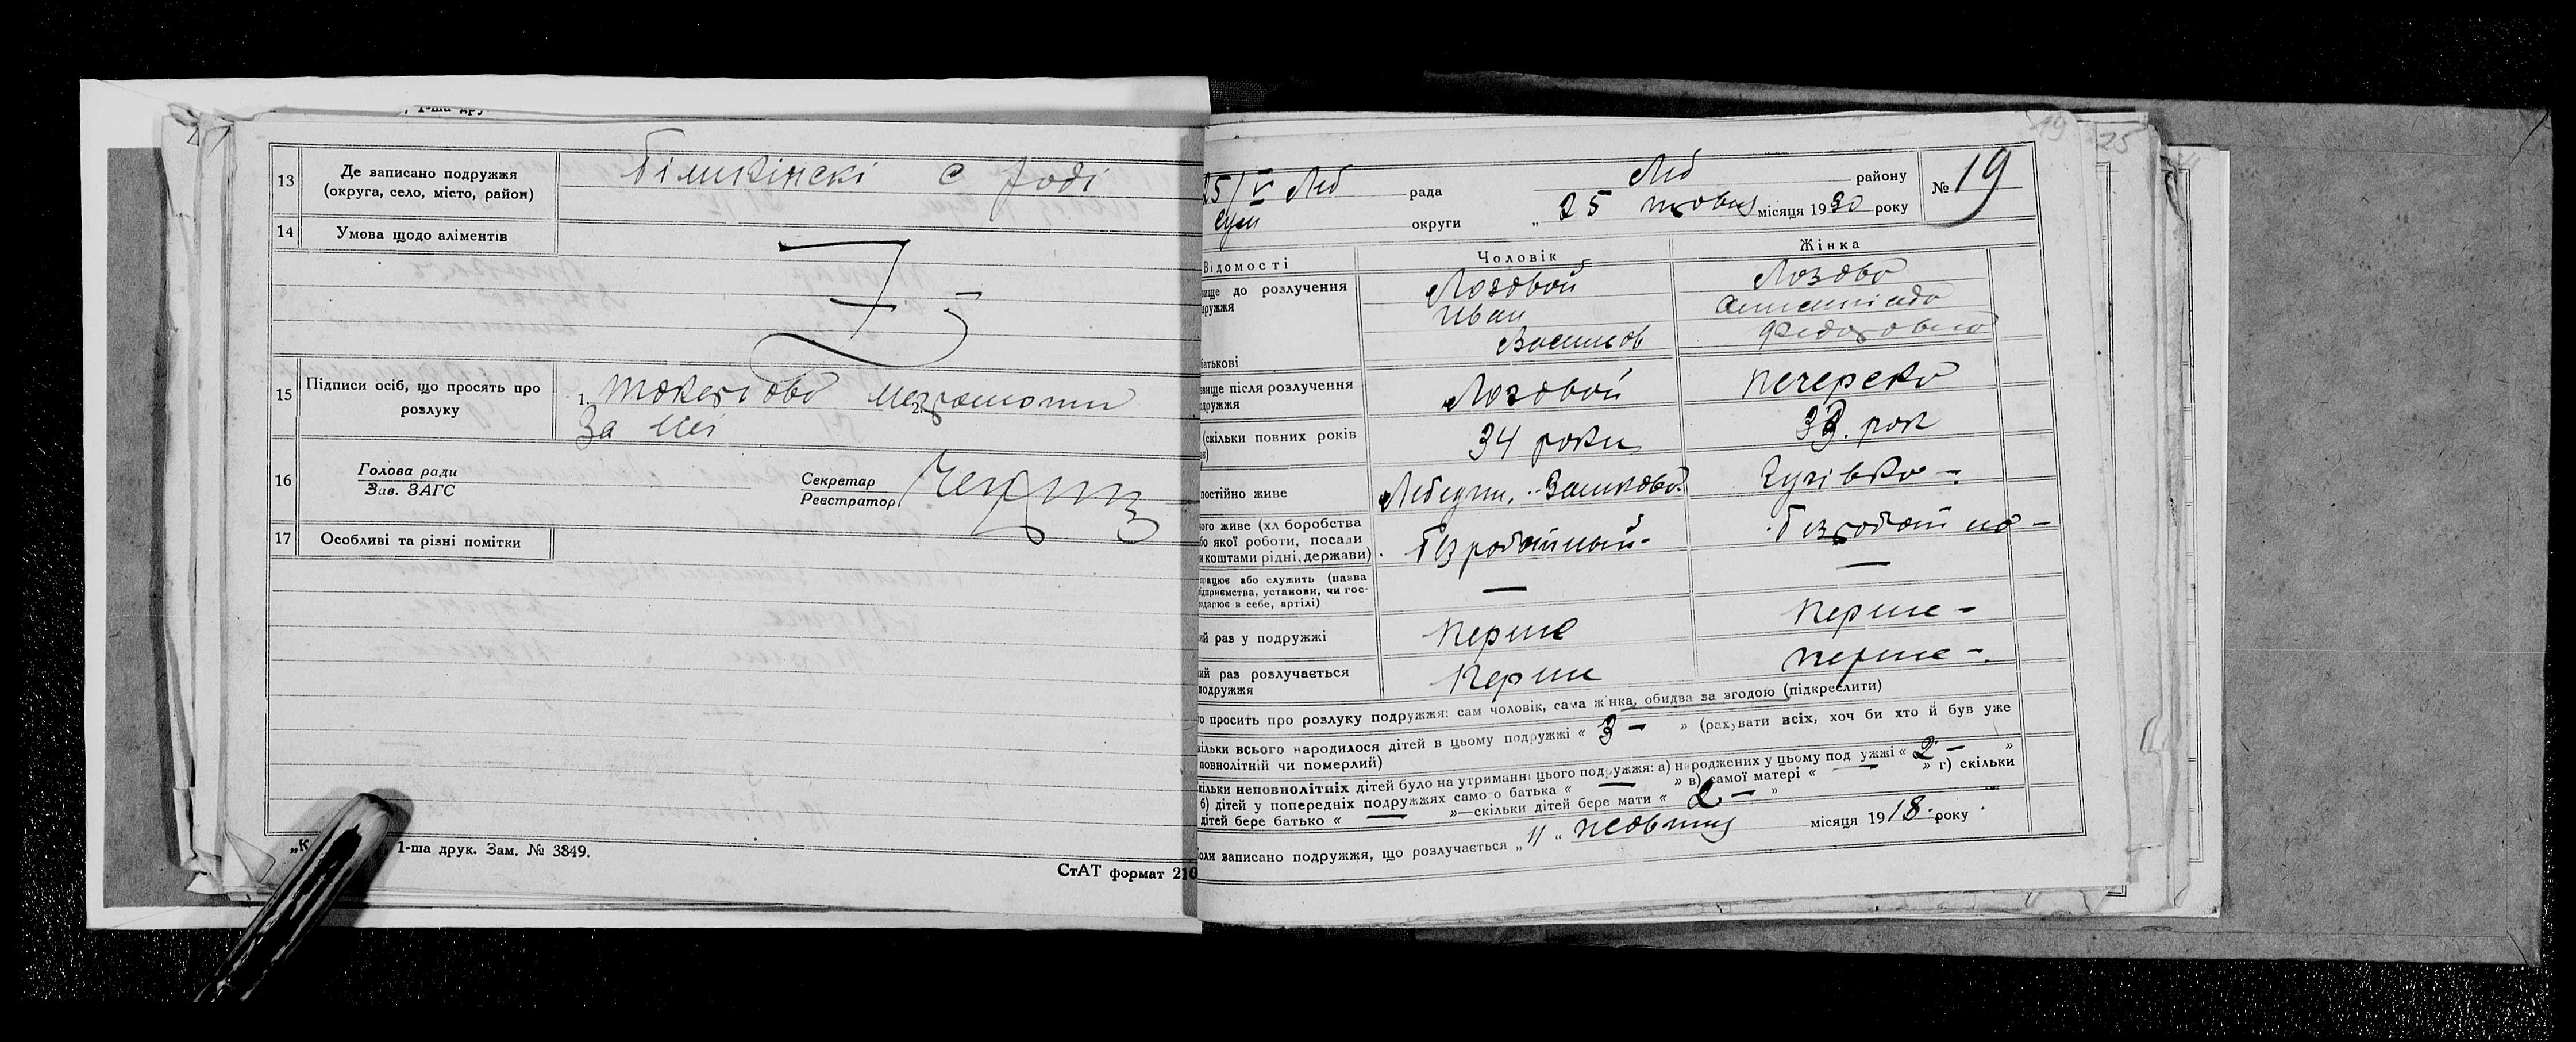 , 1-ша дру
13 Де записано подружжя
(округа, село, місто, район)
с
14 Умова щодо аліментів
15 Підписи осіб, що просять про
розлуку
1. 2.
За неї
16 Голова ради
Зав. ЗАГС
Секретар
Реєстратор
17 Особливі та різні помітки
„К
1-ша друк. Зам. № 3849.
СтАТ формат 210
19 25
25/V Леб рада Леб району № 19
Сум округи „ 25 місяця 1930 року
Відомості Чоловік Жінка
вище до розлучення
дружжя
Лозовой Лозова
Иван
Васильов Федоровна
батькові
вище після розлучення
дружжя
Лозовой Печерска
(скільки повних років
34 роки 33. рок
постійно живе
Лебедин,
ого живе (хл боробства
бо якої роботи, посади
и коштами рідні, держави)
Безработный- Безработна-
працює або служить (назва
ідприємства, установи, чи гос-
подарює в себе, артілі)
— —
ий раз у подружжі Перше Перше-
ий раз розлучається
подружжя
Перше Перше-.
го просить про розлуку подружжя: сам чоловік, сама жінка, обидва за згодою (підкреслити)
кільки всього народилося дітей в цьому подружжі « 3 — » (рахувати всіх, хоч би хто й був уже
повнолітній чи померлий)
кільки неповнолітніх дітей було на утриманні цього подружжя: а) народжених у цьому под ужжі « 2 — »
б) дітей у попередніх подружжях самого батька « — » в) самої матері « — » г) скільки
дітей бере батько « — »—скільки дітей бере мати « 2 — »
Коли записано подружжя, що розлучається „ 11 “ жовтня місяця 1918 року